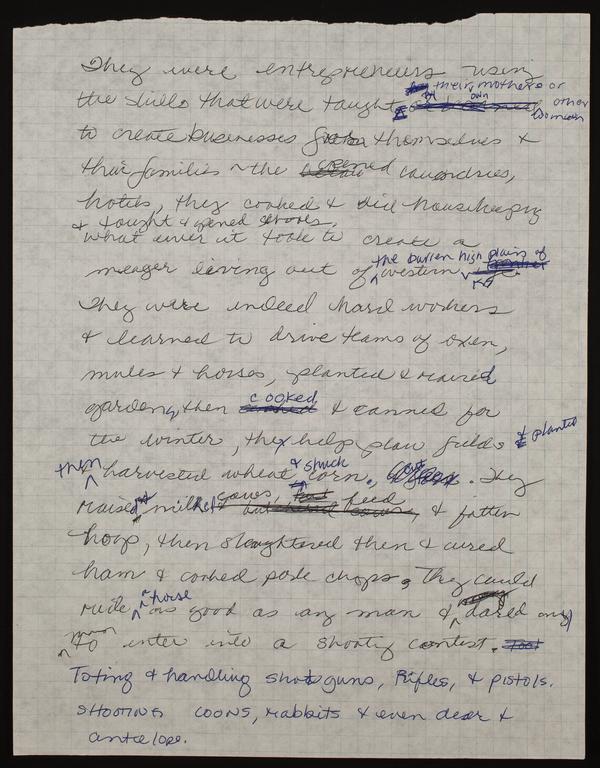 They were entrepreneurs using
their mothers or
the skills that were taught own other
women
to create businesses for themselves &
their families ~ the opened laundries,
hotels, they cooked & did housekeeping
& taught & opened schools,
what ever it took to create a
the barren high plains of
meager living out of western
They were indeed hard workers
& learned to drive teams of oxen,
mules & horses, planted & raised
cooked
gardens, then & canned for
the winter, they help plow fields & planted
then harvested wheat & shuck corn. They
raised milked cows, feed & fatten
hogs, then slaughtered then & cured
ham & cooked pork chops, They could
ride horse as good as any man & dared any
man to enter into a shooting contest.
Toting & handling shotguns, Rifles, & pistols.
SHOOTING COONS, rabbits & even dear &
antelope.